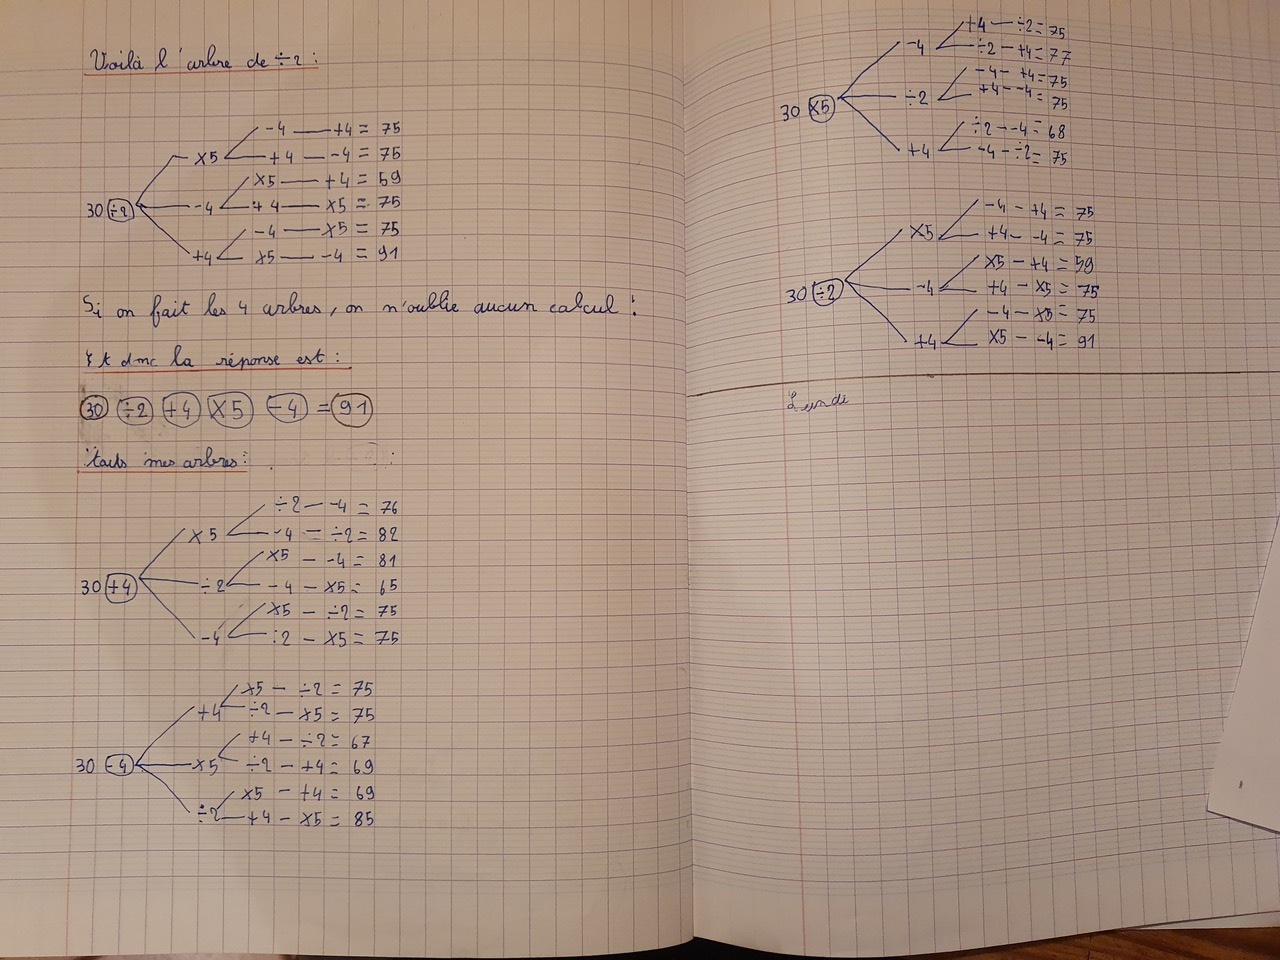 Voilà l'arbre de ÷2 :
-4 — +4 = 75
×5
+4 — -4 = 75
×5 — +4 = 59
30 ÷2 -4
+4 — ×5 = 75
-4 — ×5 = 75
+4
×5 — -4 = 91
Si on fait les 4 arbres, on n'oublie aucun calcul !
Et donc la réponse est :
30 ÷2 +4 ×5 -4 = 91
touts mes arbres :
÷2 — -4 = 76
×5
-4 — ÷2 = 82
×5 — -4 = 81
30 +4 ÷2
-4 — ×5 = 65
×5 — ÷2 = 75
-4
÷2 — ×5 = 75
×5 — ÷2 = 75
+4
÷2 — ×5 = 75
+4 — ÷2 = 67
30 -4 ×5
÷2 — +4 = 69
×5 — +4 = 69
÷2
+4 — ×5 = 85
+4 — ÷2 = 75
-4
÷2 — +4 = 77
-4 — +4 = 75
30 ×5 ÷2
+4 — -4 = 75
÷2 — -4 = 68
+4
-4 — ÷2 = 75
-4 — +4 = 75
×5
+4 — -4 = 75
×5 — +4 = 59
30 ÷2 -4
+4 — ×5 = 75
-4 — ×5 = 75
+4
×5 — -4 = 91
Lundi